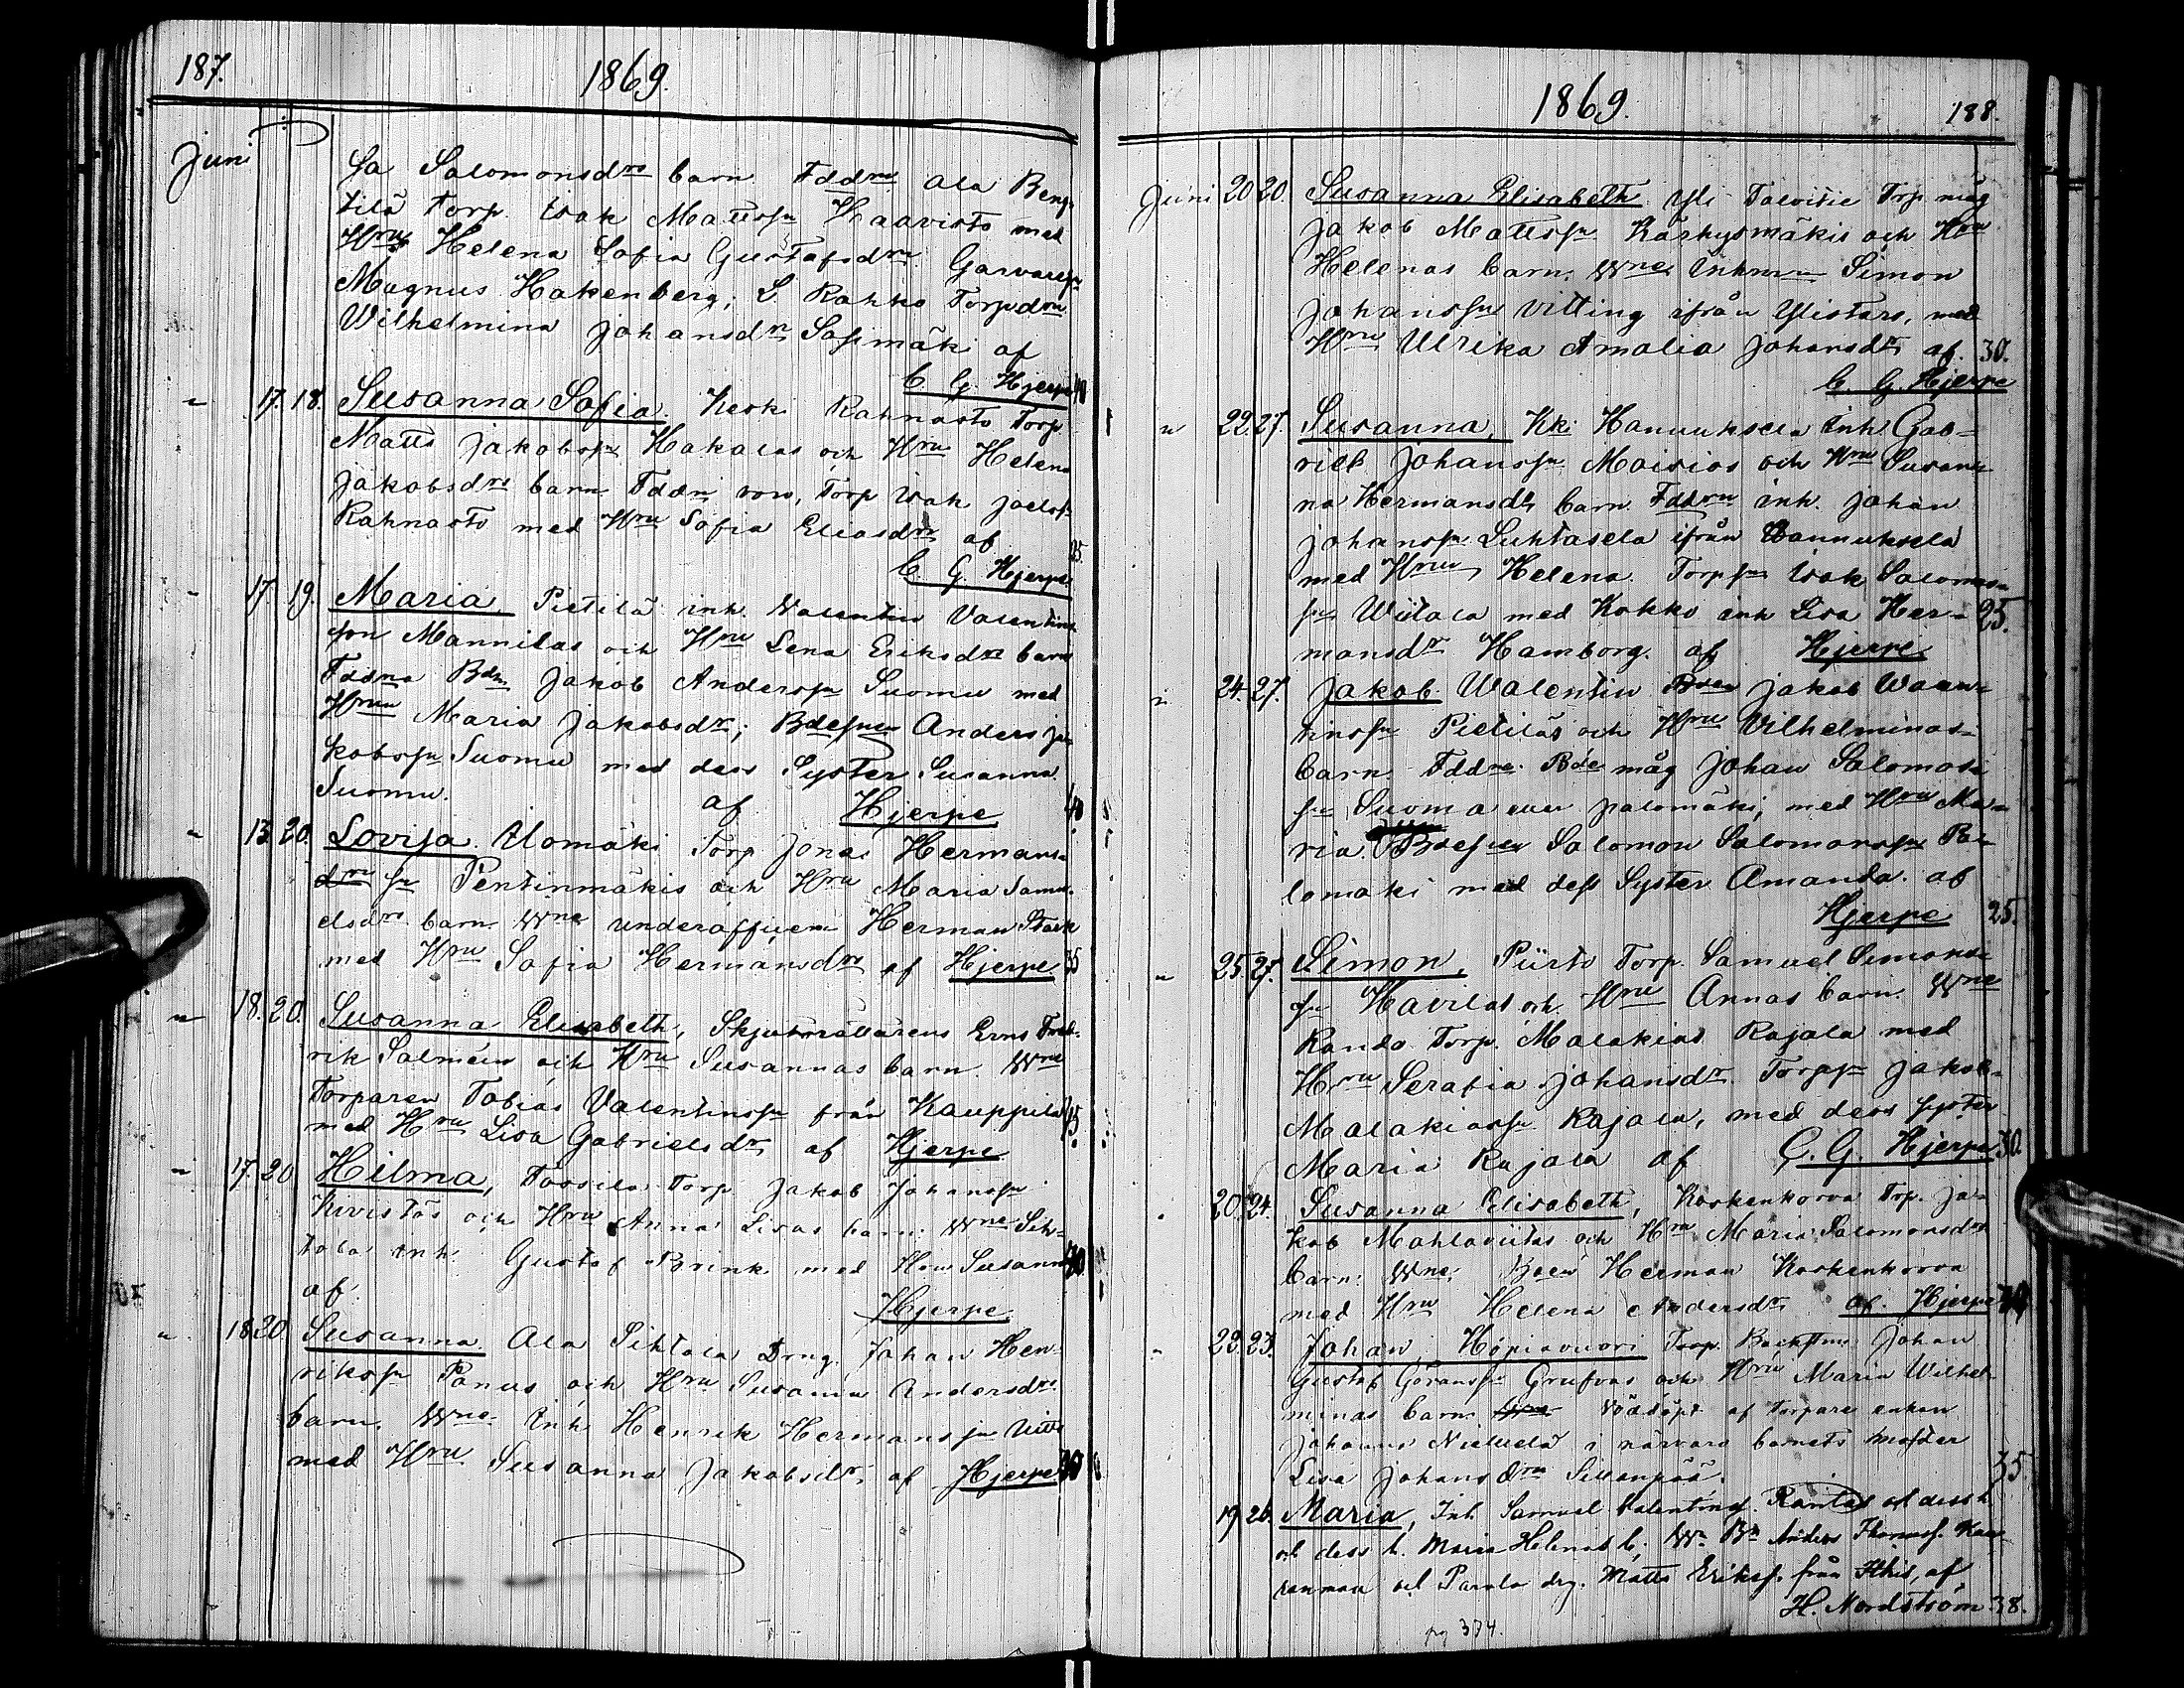 187.
1869.
Juni
sa Salomonsdrs barn. Fddrne Ala Beng-
tilä Torp. Isak Mattssn Haavisto med
Hru Helena Sofia Gustafsdr. Garvaresn
Magnus Hakenberg; L. Rahko Torpdrn
Wilhelmina Johansdr Sasimäki af
C. G. Hjerpe 40
" 17. 18. Susanna Sofia. Keski Rahnasto Torp.
Matts Jakobssn Hakalas och Hru Helena
Jakobsdrs barn. Torp Isak
Rahnasto med Hru Sofia Eliasdr af 25.
C. G. Hjerpe.
" 17. 19. Maria, Pietilä inh. Valentin Valentins-
son Mannilas och Hru Lena Eriksdrs barn
Fddrna Bdn Jakob Anderssn Suomu med
Hrun Maria Jakobsdr; Bdesnen Anders Ja-
kobssn Suomu med dess Syster Susanna
Suomu. af Hjerpe 40.
" 13. 20. Lovisa. Ulomäki Torp. Jonas Hermans-
sn Pentinmäkis och Hru Maria Samu-
elsdrs barn. Wne underofficern Herman Stark
med Hru Sofia Hermansdr af Hjerpe 35
" 18. 20. Susanna Elisabeth, Skjutsrättarens Erns Fred-
rik Salméns och Hru Susannas barn. Wne
Torparen Tobias Valentinssn från Kauppila 35.
med Hru Lisa Gabrielsdr af Hjerpe
" 17. 20 Hilma, Torp Jakob Johanssn
Kivistös och Hru Anna Lisas barn: Wne Sih-
tola inh. Gustaf Brink med Hru Susanna 40
af. Hjerpe
" 18 20 Susanna. Ala Sihtola Drng. Johan Hen-
rikssn Panus och Hru Susanna Andersdrs
barn. Wne. Inh Henrik Hermanssn
med Hru Susanna Jakobsdr, af Hjerpe 30
1869.
188.
Juni 20 20. Susanna Elisabeth Yli Talvitie Trp. måg
Jakob Mattssn Kärkysmäkis och Hru
Helenas barn. Wne Simon
Johanssn Vitting ifrån Ylistaro, med
Hru Ulrika Amalia Johansdr af. 30.
C. G. Hjerpe
" 22. 27. Susanna, Kki Hannuksela Inh. Gab-
riel Johanssn Moisios och Hru Susan-
na Hermansdrs barn Fddrne inh. Johan
Johanssn Luhtasela ifrån Hannuksela
med Hrun Helena. Torpsn Isak Salomons-
sn Wiitala med Kokko inh Lisa Her- 25.
mansdr Hamborg. af Hjerpe
" 24. 27. Jakob. Walentin Jakob Walen-
tinssn Pietiläs och Hru Vilhelminas
barn. Fddne. Bde måg Johan Salomons-
sn Suoma eller Palomäki, med Hru Ma-
ria. Bdesnen Salomon Salomonssn Pa-
lomäki med dess Syster Amanda. af
Hjerpe 25.
" 25. 27. Simon, Piirto Torp. Samuel Simons-
sn Havilas och Hru Annas barn. Wne
Rando Torp. Malakias Rajala med
Hru Serafia Johansdr. Torpsn Jakob
Malakiassn Rajala, med dess syster
Maria Rajala af C. G. Hjerpe 30.
. 20. 24. Susanna Elisabeth, Koskenkorva Trp. Ja-
kob Mahlaviitas och Hru Maria Salomonsdrs
barn. Wne. Herman Koskenkorva
med Hru Helena Andersdr af. Hjerpe
" 23. 23. Johan, Höpiavuori Torp. Johan
Gustaf Göranssn Grufvas och Hru Maria Wilhel-
minas barn. Nöddöpt af Torpare enkan
Johanna i närvaro barnets moder
Lisa Johansdrn 35
19 26. Maria, Inh. Samuel Valentinss. Rantas och dess h.
och dess h. Maria Helenas b. Wn. Bn Anders
och Parola drg. Matts Erikss. från af
H. Nordström 38.
pg 374.